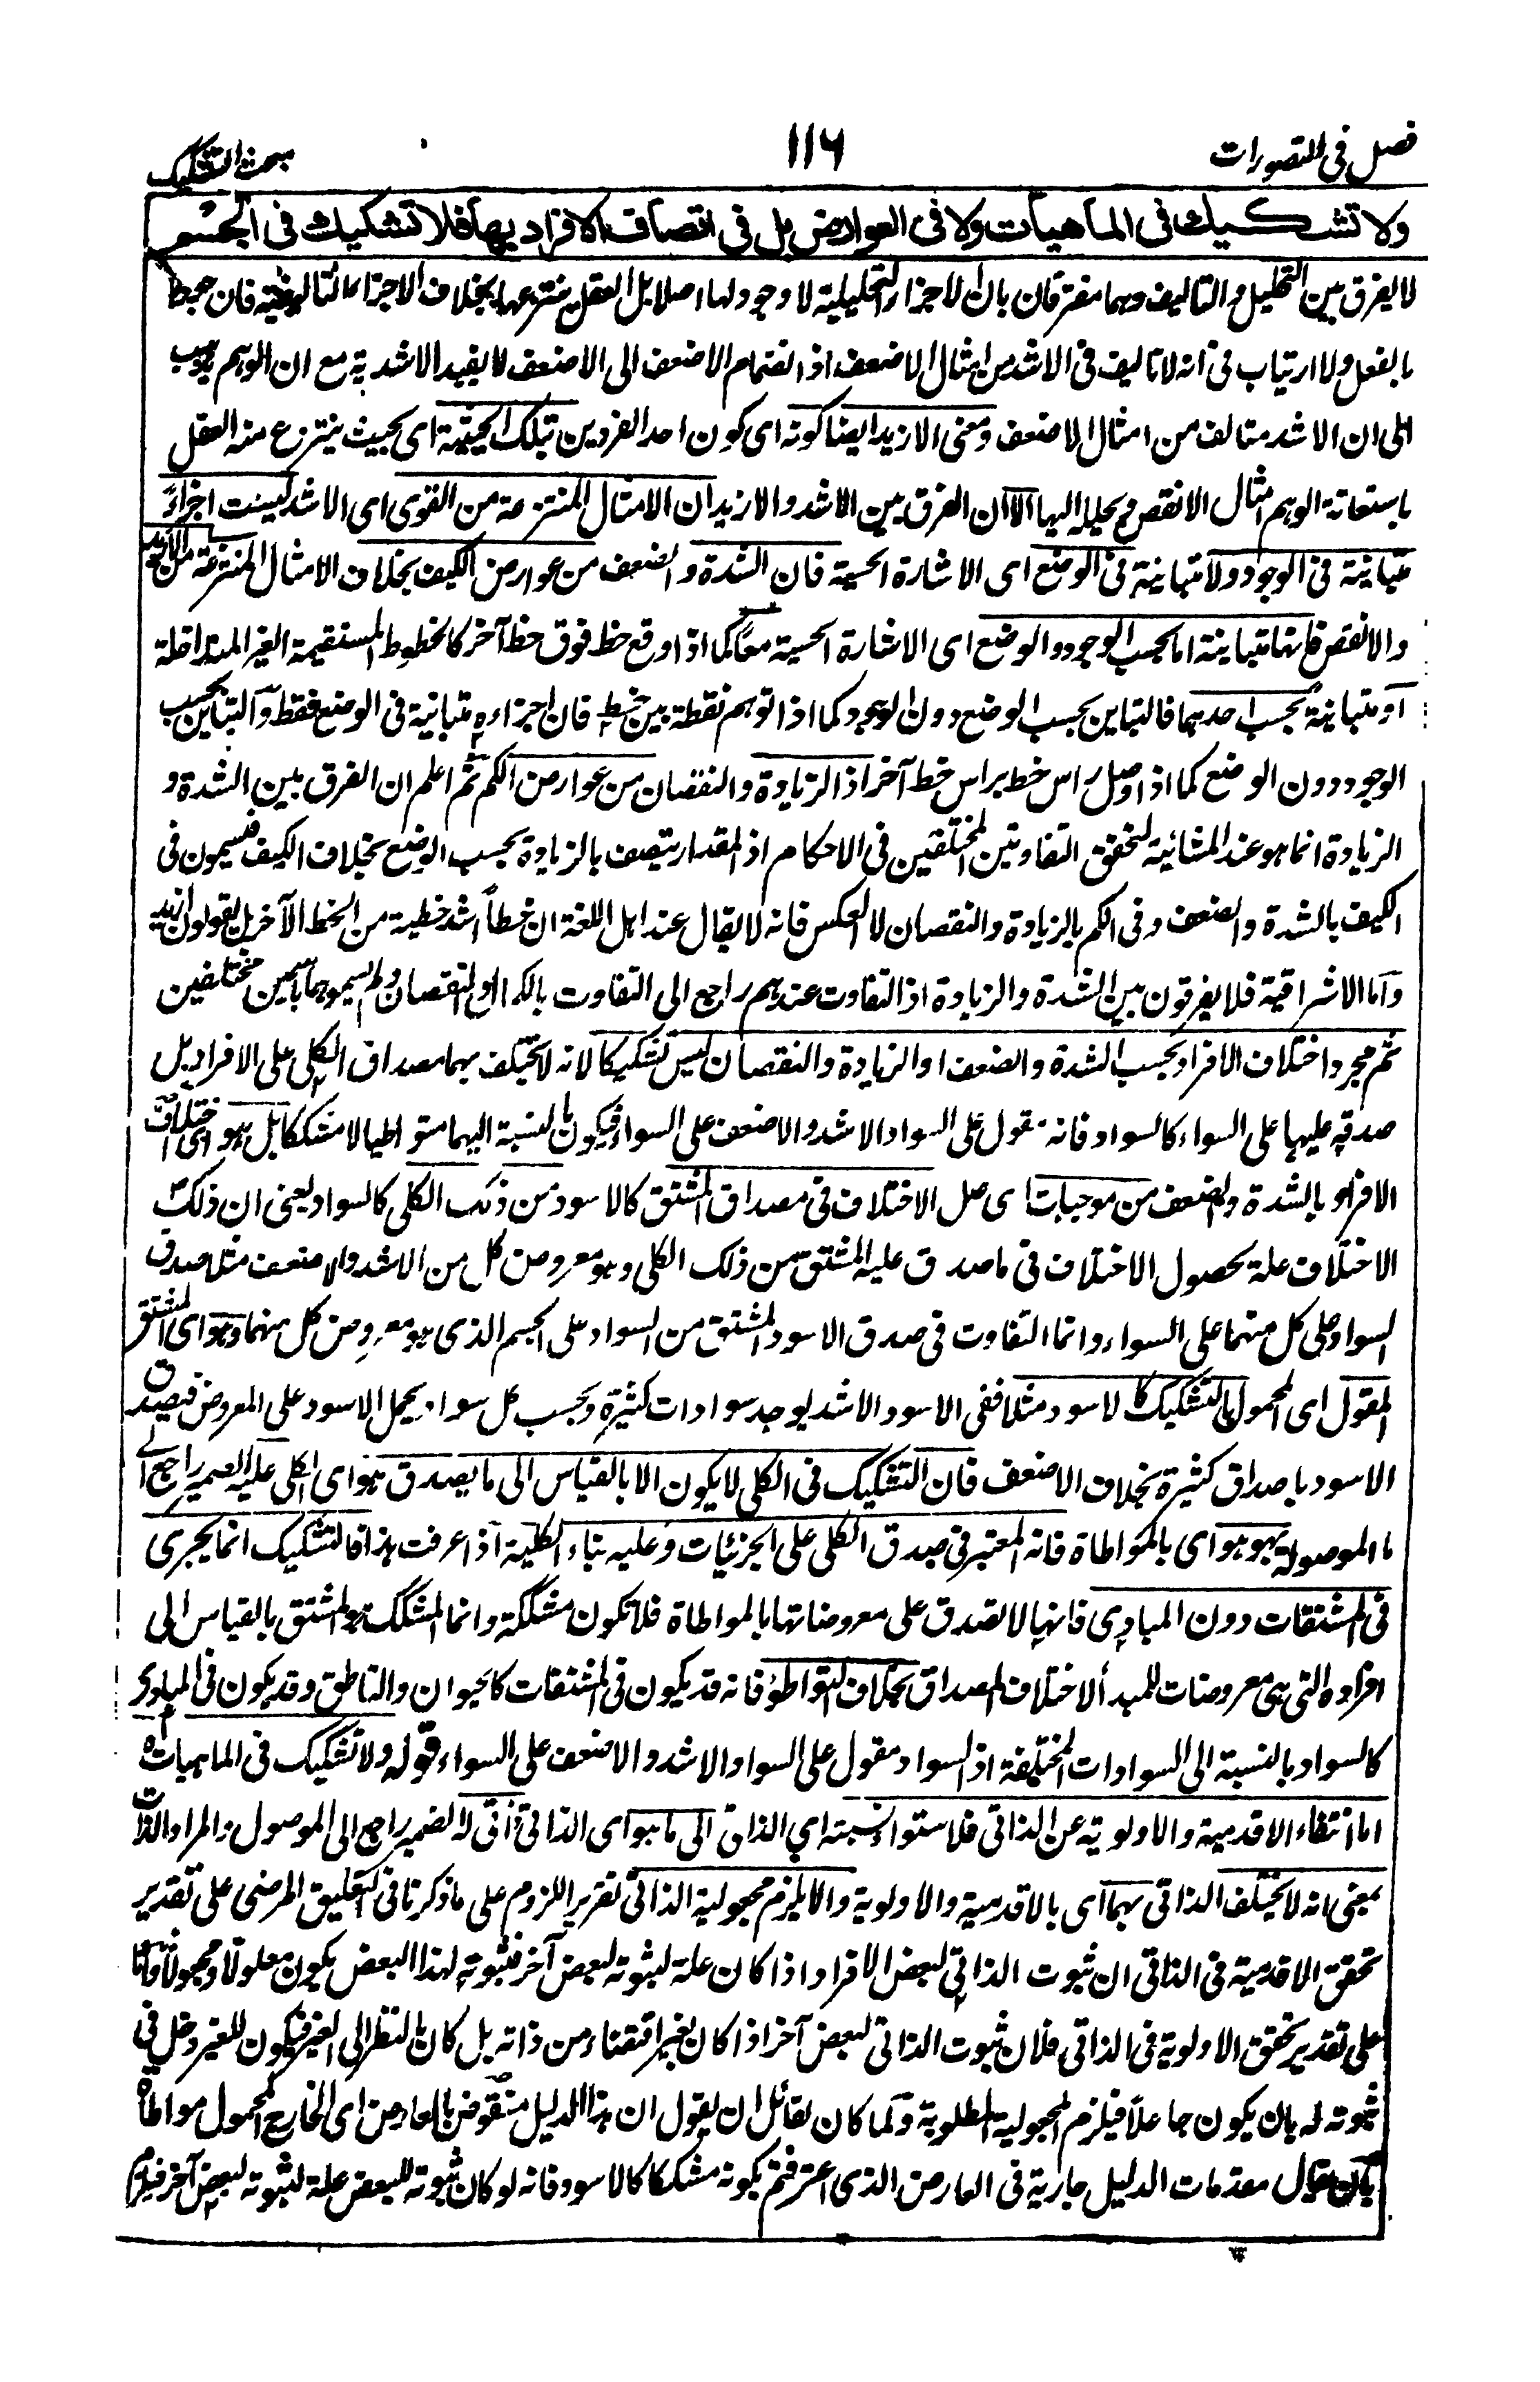 فصل فی التصورات
۱۱۶
مبحث التشکیک
ولا تشکیک فی الماهیات ولا فی العوارض بل فی اتصاف الافراد بها فلا تشکیک فی الجسم
لا یفرق بین التحلیل والتالیف وہما مفترقان بان الاجزاء التحلیلیة لا وجود لہا اصلا بل العقل ینتزعہا بخلاف الاجزاء التالیفیة فان
بالفعل ولا ارتیاب فی انہ لا تالیف فی الاشد من امثال الاضعف اذ انضمام الاضعف الی الاضعف لا یفید الاشدیة مع ان الوہم یذہب
الی ان الاشد متالف من امثال الاضعف ومعنی الازید ایضا کونہ ای کون احد الفردین بتلک الحیثیة ای بحیث ینتزع منہ العقل
باستعانة الوہم امثال الانقص ویحیلہ الیہا الا ان الفرق بین الاشد والازید ان الامثال المنتزعة من القوی ای الاشد لیست اجزاءً
متباینة فی الوجود ولا متباینة فی الوضع ای الاشارة الحسیة فان الشدة والضعف من عوارض الکیف بخلاف الامثال المنتزعة من الازید
والانقص فانہا متباینة اما بحسب الوجود والوضع ای الاشارة الحسیة معاً کما اذا وقع خط فوق خط آخر کالخطوط المستقیمة الغیر المتداخلة
او متباینة بحسب احدہما فالتباین بحسب الوضع دون الوجود کما اذا توہم نقطة بین خط فان اجزاءہ متباینة فی الوضع فقط والتباین بحسب
الوجود دون الوضع کما اذا وصل راس خط براس خط آخر اذ الزیادة والنقصان من عوارض الکم ثم اعلم ان الفرق بین الشدة و
الزیادة انما ہو عند المشائیة لتحقق التفاوتین المختلفین فی الاحکام اذ المقدار یتصف بالزیادة بحسب الوضع بخلاف الکیف فیسمون فی
الکیف بالشدة والضعف وفی الکم بالزیادة والنقصان لا العکس فانہ لا یقال عند اہل اللغة ان خطاً اشد خطیة من الخط الآخر بل یقولون ازید
واما الاشراقیة فلا یفرقون بین الشدة والزیادة اذ التفاوت عندہم راجع الی التفاوت بالکمال والنقصان ولم یسموہما باسمین مختلفین
ثم مجرد اختلاف الافراد بحسب الشدة والضعف او الزیادة والنقصان لیس تشکیکا لانہ لا یختلف بہما مصداق الکلی علی الافراد بل
صدقہ علیہا علی السواء کالسواد فانہ مقول علی السواد الاشد والاضعف علی السواء فیکون بالنسبة الیہما متواطیا لا مشککا بل ہو ای اختلاف
الافراد بالشدة والضعف من موجبات ای علل الاختلاف فی مصداق المشتق کالاسود من ذلک الکلی کالسواد یعنی ان ذلک
الاختلاف علة لحصول الاختلاف فی ما صدق علیہ المشتق من ذلک الکلی وہو معروض کل من الاشد والاضعف مثلا صدق
السواد علی کل منہما علی السواء وانما التفاوت فی صدق الاسود المشتق من السواد علی الجسم الذی ہو معروض کل منہما وہو ای المشتق
المقول ای المحمول بالتشکیک کالاسود مثلا ففی الاسود الاشد یوجد سوادات کثیرة وبحسب کل سواد یحمل الاسود علی المعروض فیصدق
الاسود باصداق کثیرة بخلاف الاضعف فان التشکیک فی الکلی لا یکون الا بالقیاس الی ما یصدق ہو ای الکلی علیہ الضمیر راجع الی
ما الموصولة بہو ہو ای بالمواطاة فانہ المعتبر فی صدق الکلی علی الجزئیات وعلیہ بناء الکلیة اذا عرفت ہذا فالتشکیک انما یجری
فی المشتقات دون المبادی فانہا لا تصدق علی معروضاتہا بالمواطاة فلا تکون مشککة وانما المشکک ہو المشتق بالقیاس الی
افرادہ التی ہی معروضات للمبدأ لاختلاف المصداق بخلاف التواطؤ فانہ قد یکون فی المشتقات کالحیوان والناطق وقد یکون فی المبادی
کالسواد بالنسبة الی السوادات المختلفة اذ السواد مقول علی السواد الاشد والاضعف علی السواء قولہ ولا تشکیک فی الماہیات
اما انتفاء الاقدمیة والاولویة عن الذاتی فلاستواء نسبتہ ای الذاتی الی ما ہو ای الذاتی ذاتی لہ الضمیر راجع الی الموصول والمراد الذات
بمعنی انہ لا یختلف الذاتی بہما ای بالاقدمیة والاولویة والا یلزم مجعولیة الذاتی تقریر اللزوم علی ما ذکرنا فی التعلیق المرضی علی تقدیر
تحقق الاقدمیة فی الذاتی ان ثبوت الذاتی لبعض الافراد اذا کان علة لثبوتہ لبعض آخر فثبوتہ لہذا البعض یکون معلولا ومجعولا واما
علی تقدیر تحقق الاولویة فی الذاتی فلان ثبوت الذاتی لبعض آخر اذا کان بغیر اقتضاء من ذاتہ بل کان بالنظر الی الغیر فیکون للغیر دخل فی
ثبوتہ لہ بان یکون جاعلا فیلزم المجعولیة المطلوبة ولما کان لقائل ان یقول ان ہذا الدلیل منقوض بالعارض ای الخارج المحمول مواطاة
بان یقال مقدمات الدلیل جاریة فی العارض الذی اعترفتم بکونہ مشککا کالاسود فانہ لو کان ثبوتہ للبعض علة لثبوتہ لبعض آخر فیلزم